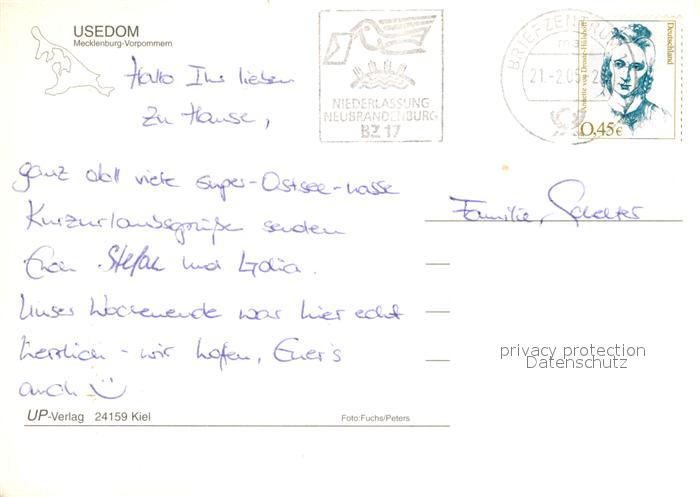 USEDOM
Mecklenburg-Vorpommern
Hallo Ihr lieben
zu Hause,
ganz doll viele super-Ostsee-klasse
Kurzurlaubsgrüße senden
Euch Stefan und Lydia.
Unser Wochenende war hier echt
herrlich - wir hofen, Euer's
auch
UP-Verlag 24159 Kiel
Foto:Fuchs/Peters
NIEDERLASSUNG
NEUBRANDENBURG
BZ 17
BRIEFZENTRUM
21.-2.05
Deutschland
Annette von Droste-Hülshoff
0,45€
Familie
privacy protection
Datenschutz